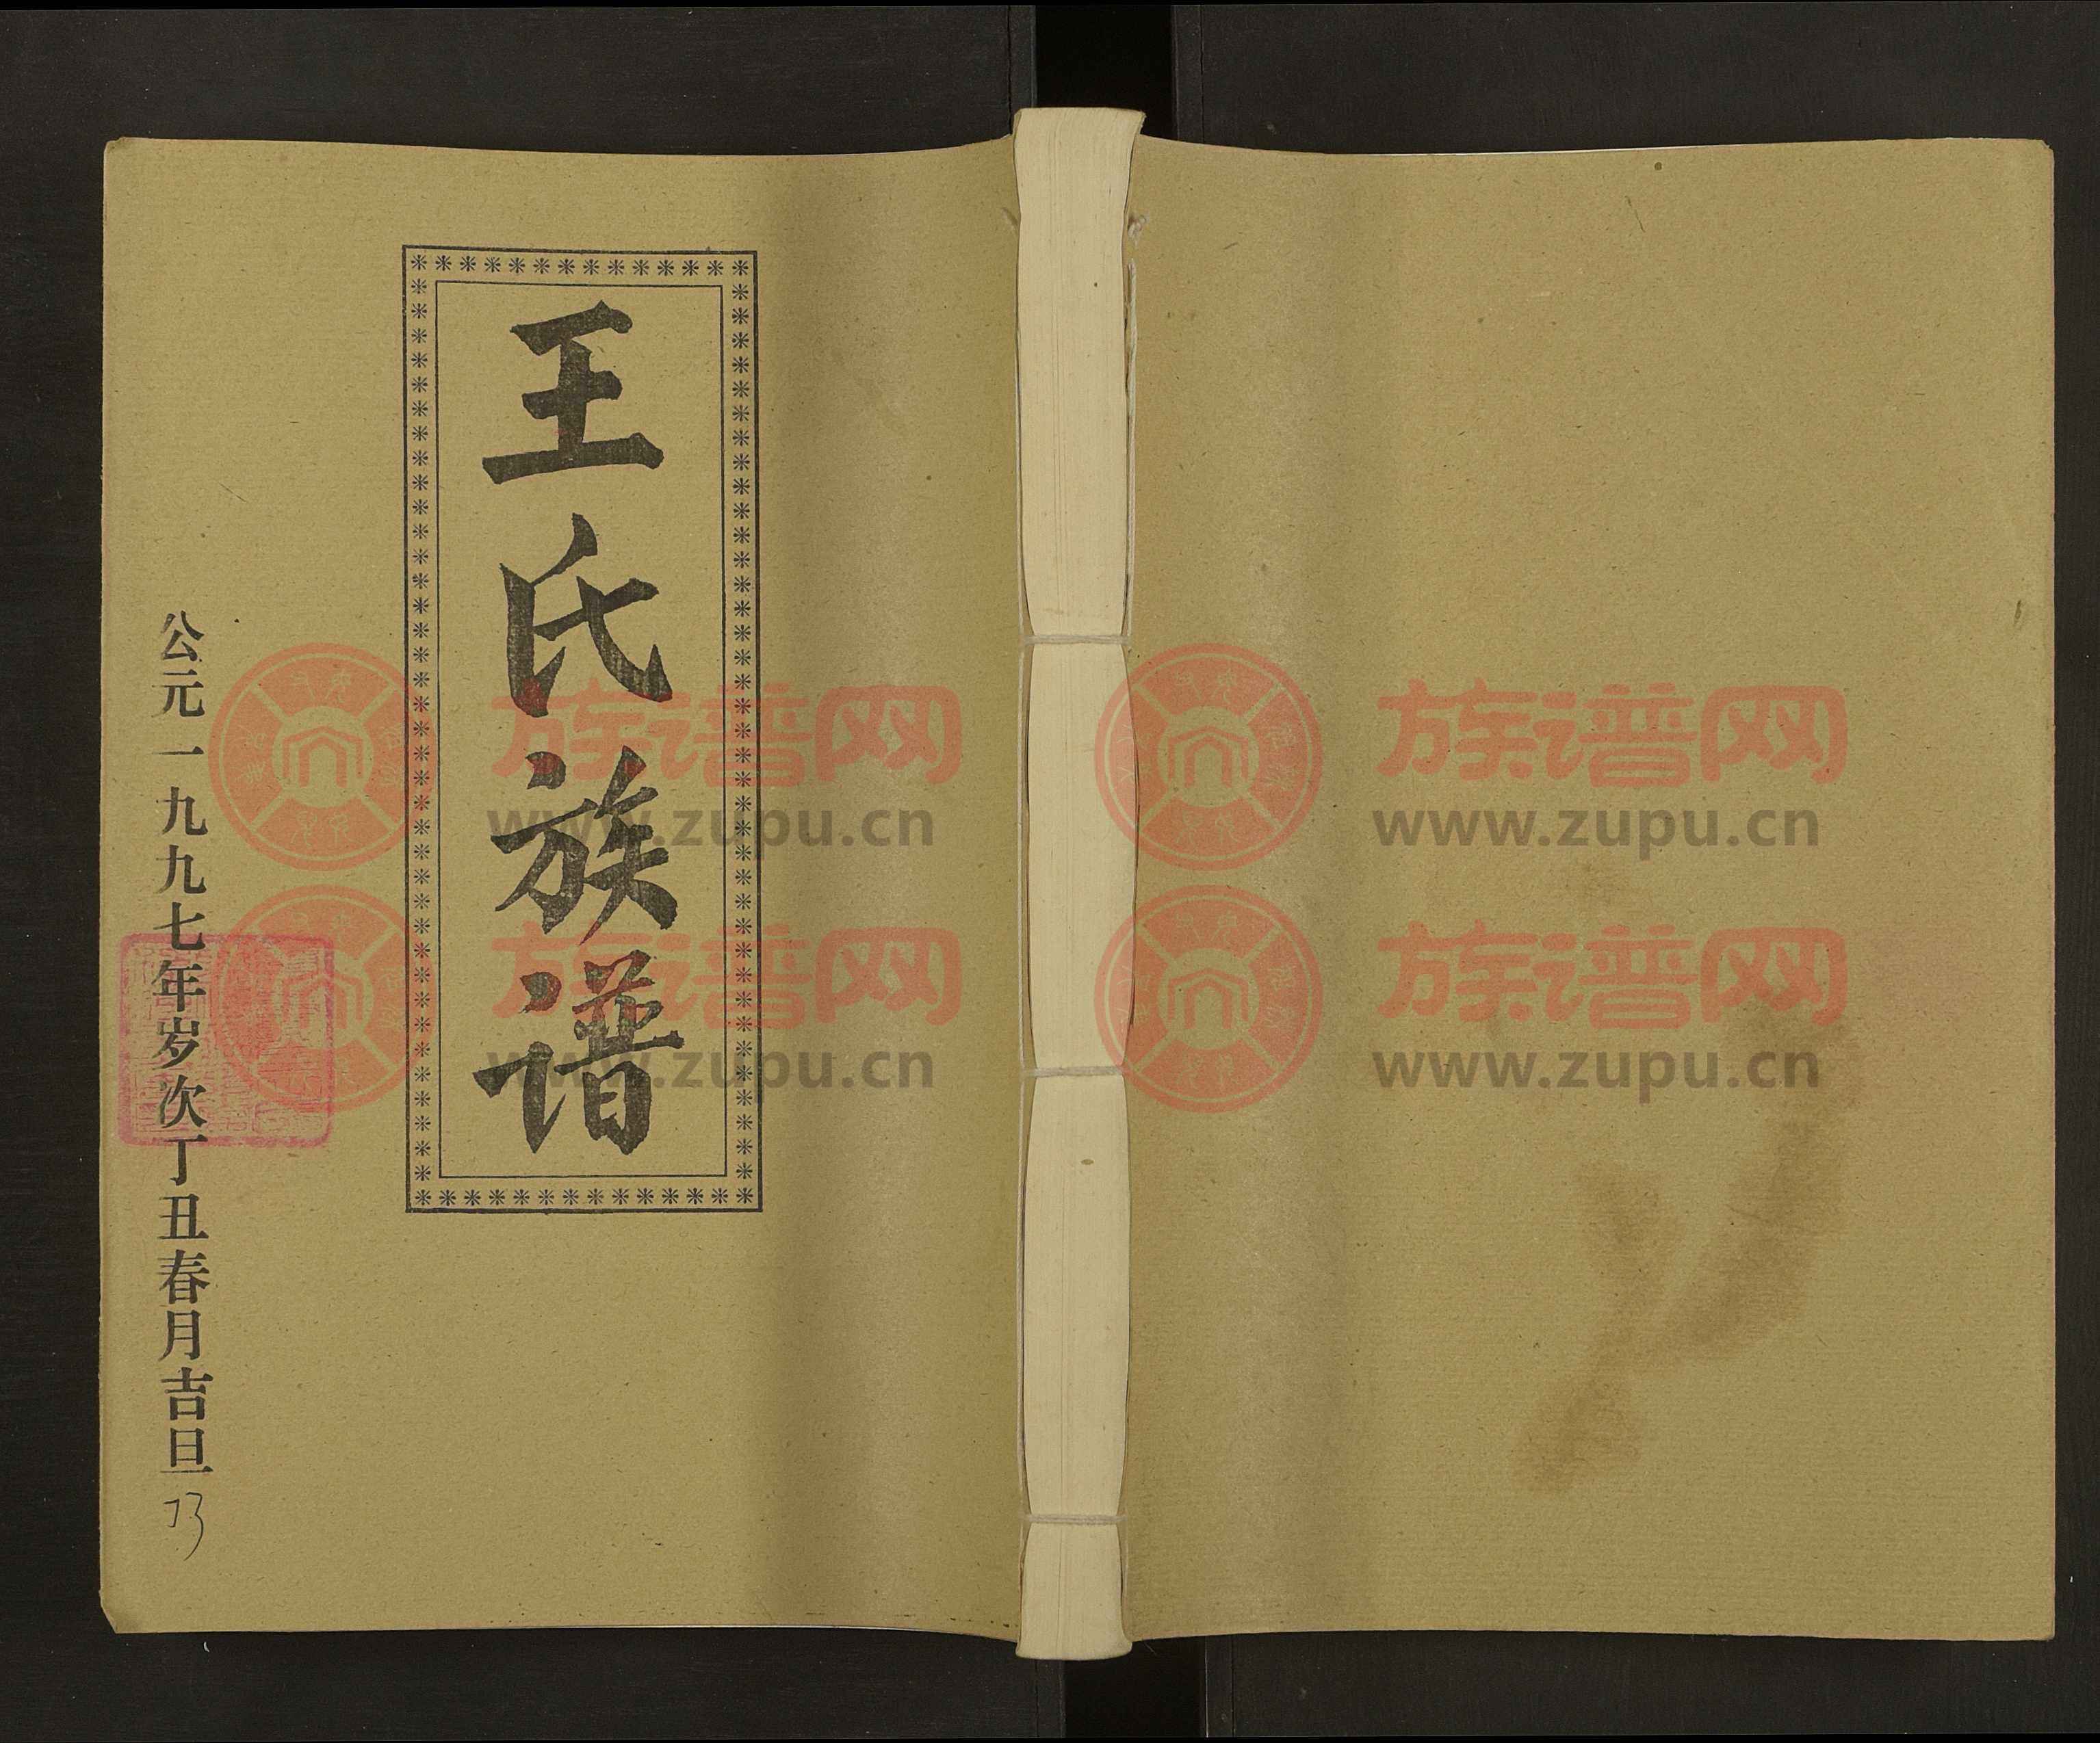 王氏族谱
公元一九九七年岁次丁丑春月吉旦
73
族谱网
www.zupu.cn
族谱网
www.zupu.cn
族谱网
www.zupu.cn
族谱网
www.zupu.cn